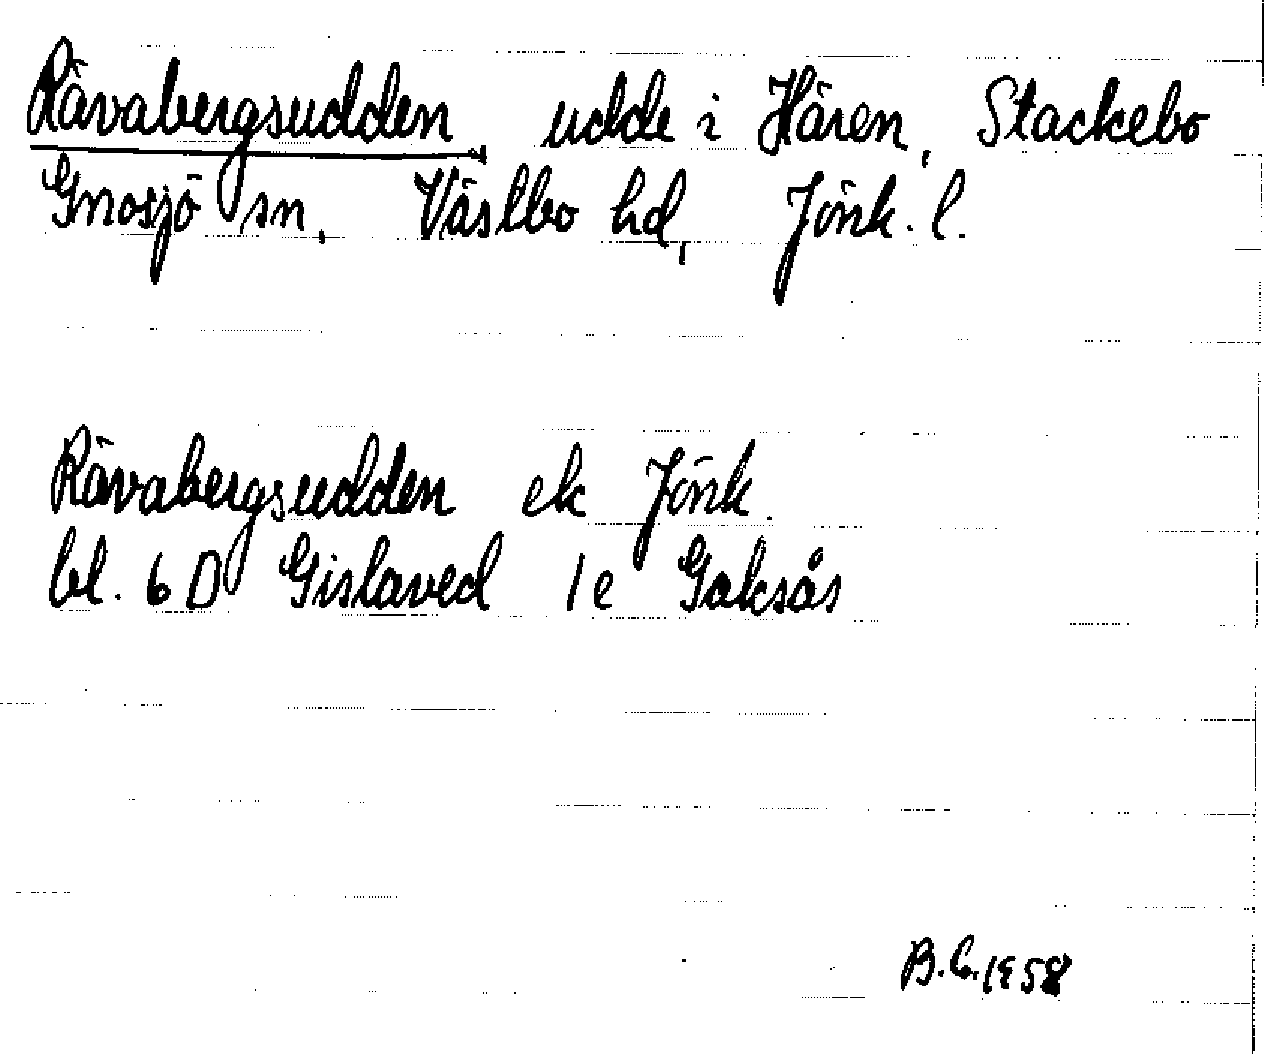 Rävabergsudden udde i Hären, Stackebo
Gnosjö sn, Västbo hd, Jönk. l.
Rävabergsudden ek Jönk.
bl. 6 D Gislaved 1e Goksås
B.C. 1958